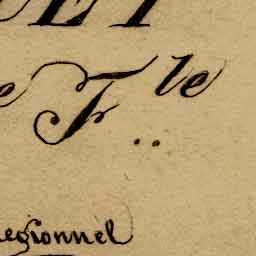 e F.le
egionnel